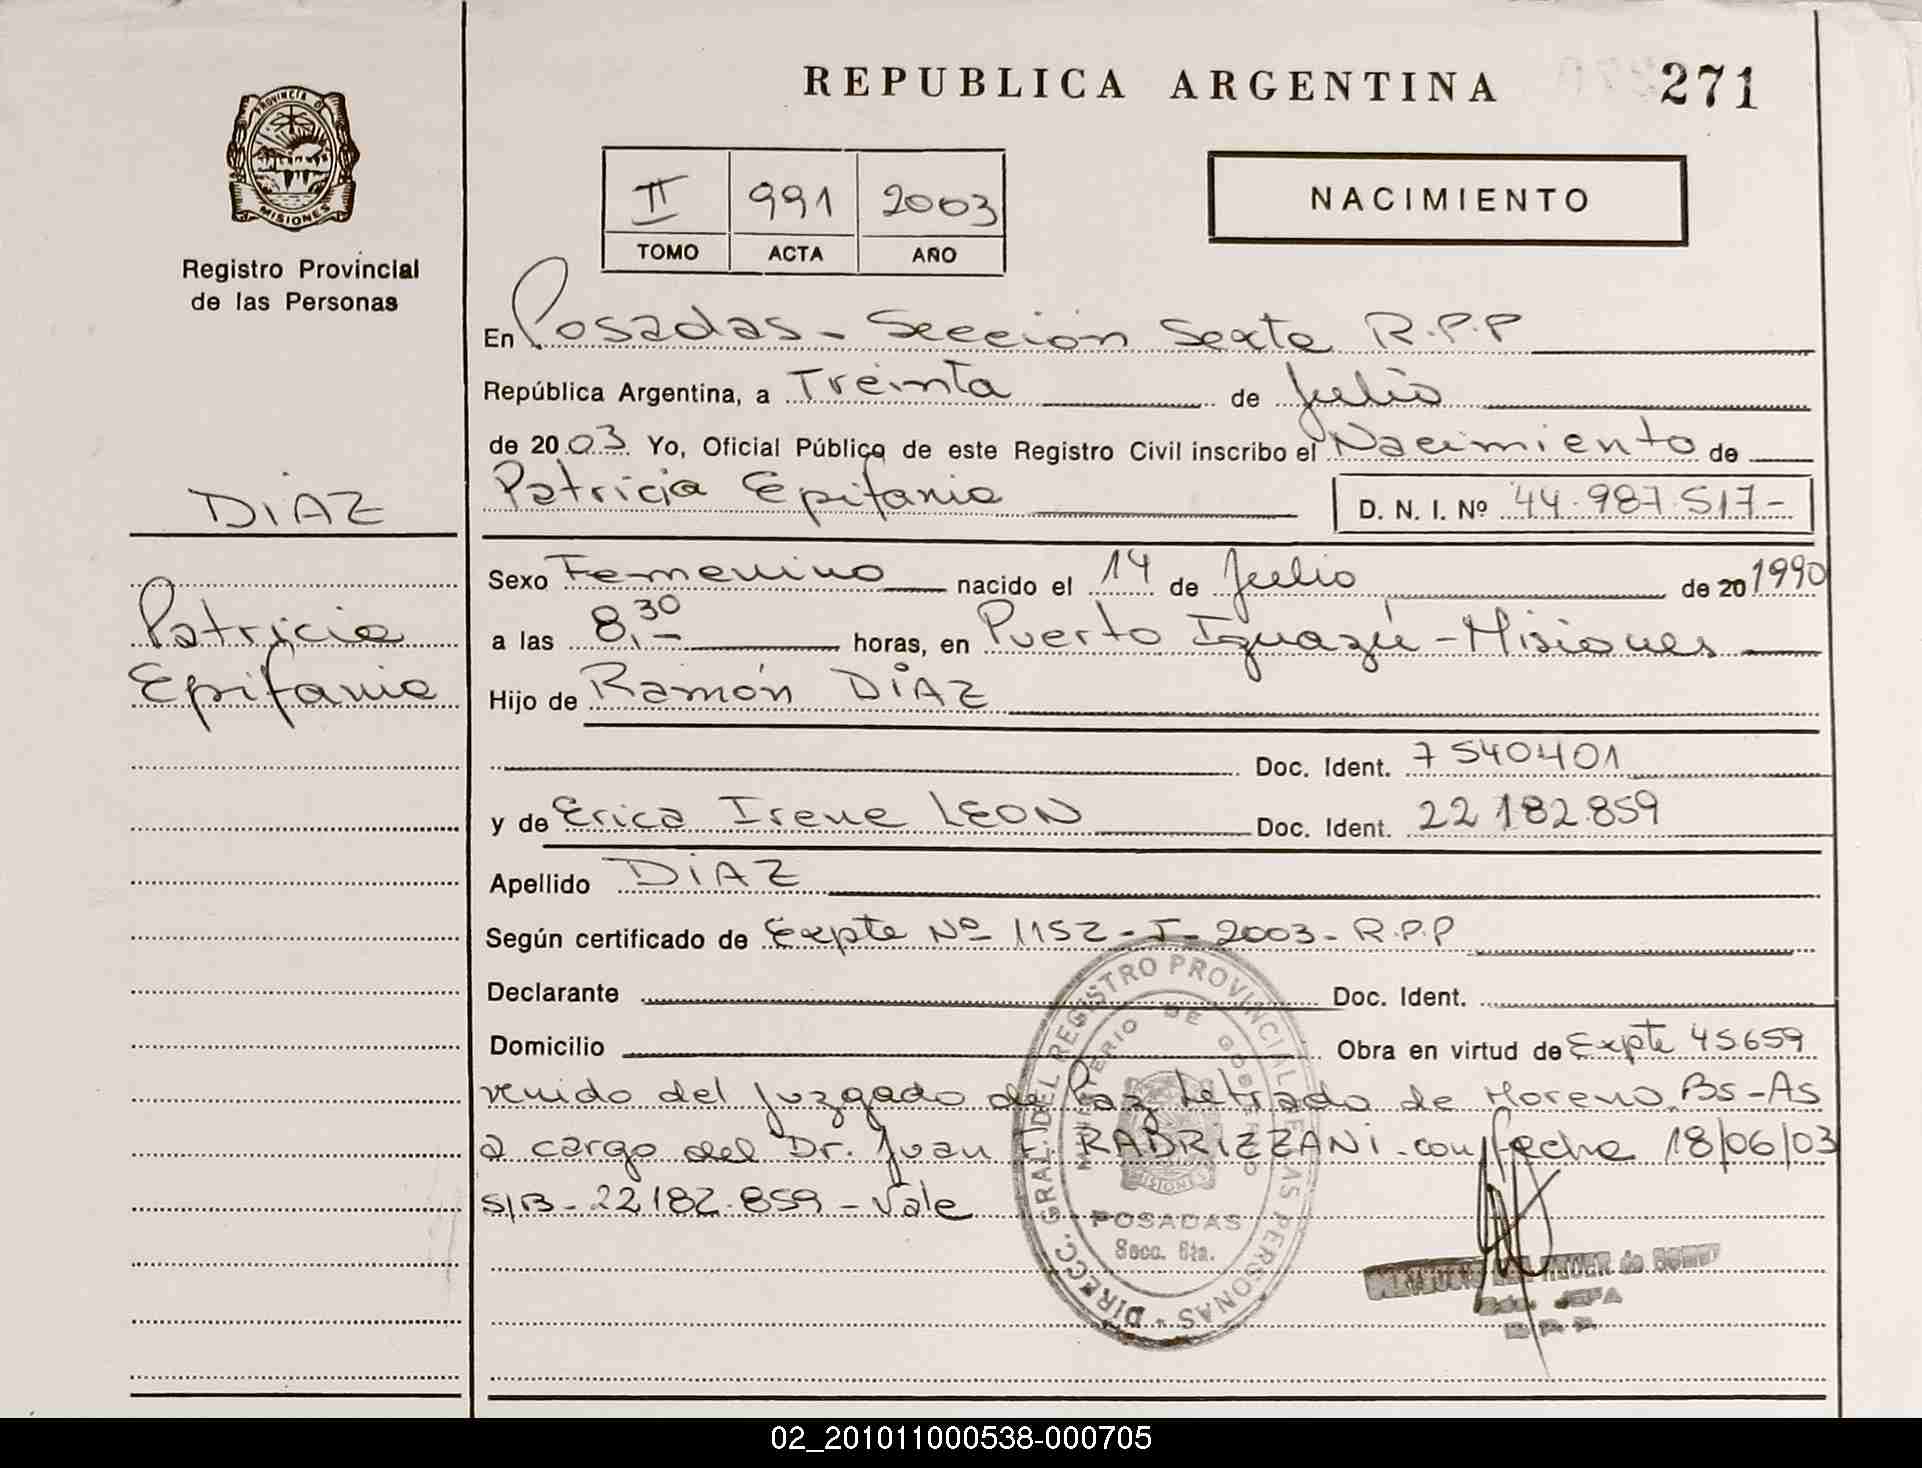 REPUBLICA ARGENTINA
271
PROVINCIA D
MISIONES
Registro Provincial
de las Personas
II 991 2003
TOMO ACTA AÑO
NACIMIENTO
En Posadas - Sección Sexta R.P.P
República Argentina, a Treinta de Julio
de 2003 Yo, Oficial Público de este Registro Civil inscribo el Nacimiento de
Patricia Epifania D. N. I. Nº 44.987.517-
DIAZ
Patricia
Epifania
Sexo Femenino nacido el 14 de Julio de 20 1990
a las 8,30 horas, en Puerto Iguazú - Misiones
Hijo de Ramón DIAZ
Doc. Ident. 7540401
y de Erica Irene LEON Doc. Ident. 22182.859
Apellido DIAZ
Según certificado de Expte Nº 1152 - I - 2003 - R.P.P
Declarante Doc. Ident.
Domicilio Obra en virtud de Expte 45659
venido del Juzgado de Paz Letrado de Moreno Bs-As
a cargo del Dr. Juan F. RABRIZZANI - con fecha 18/06/03
S/B - 22182.859 - Vale
DIRECC. GRAL. DEL REGISTRO PROVINCIAL DE LAS PERSONAS
MINISTERIO DE GOBIERNO
MISIONES
POSADAS
Secc. 6ta.
JEFA
02_201011000538-000705